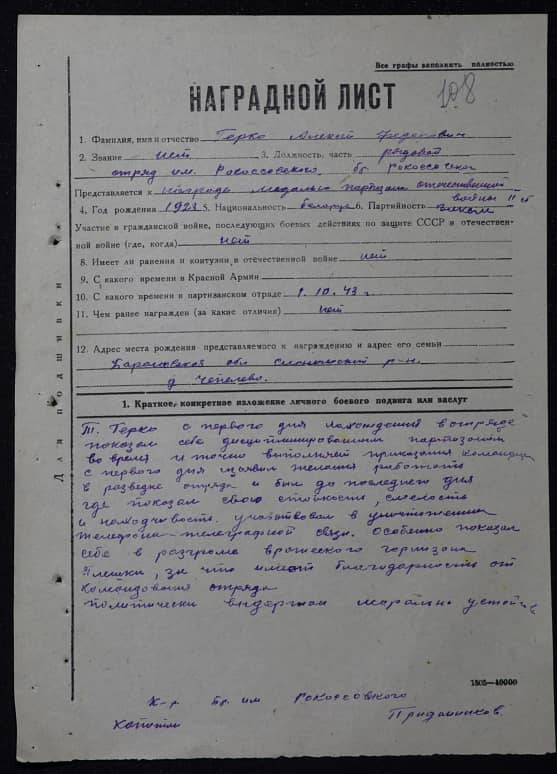 Все графы заполнять полностью
108
НАГРАДНОЙ ЛИСТ
1. Фамилия, имя и отчество Герко Алексей
2. Звание нет 3. Должность, часть рядовой
отряд им. Рокоссовского бр. Рокоссовского
Представляется к награде медалью партизана отечественной
войны II ст
4. Год рождения 1923 5. Национальность белорус 6. Партийность
Участие в гражданской войне, последующих боевых действиях по защите СССР и отечествен-
ной войне (где, когда) нет
8. Имеет ли ранения и контузии в отечественной войне нет
9. С какого времени в Красной Армии
10. С какого времени в партизанском отряде 1.10.43 г.
11. Чем ранее награжден (за какие отличия) нет
12. Адрес места рождения представляемого к награждению и адрес его семьи
Барановская обл Слонимский р-н.
д Чепелево.
Для подшивки
1. Краткое, конкретное изложение личного боевого подвига или заслуг
Т. Герко с первого дня нахождения в отряде
показал себя дисциплинированным партизаном
во время и точно выполнял приказания командира
с первого дня изъявил желания работать
в разведке отряда и был до последнего дня
где показал свою стойкость, смелость
и находчивость. участвовал в уничтожении
телефоно-телеграфной связи. Особенно показал
себя в разгроме вражеского гарнизона
за что имеет благодарность от
командования отряда
политически выдержан морально устойчив
1505—10000
К-р бр. им Рокоссовского
Капитан